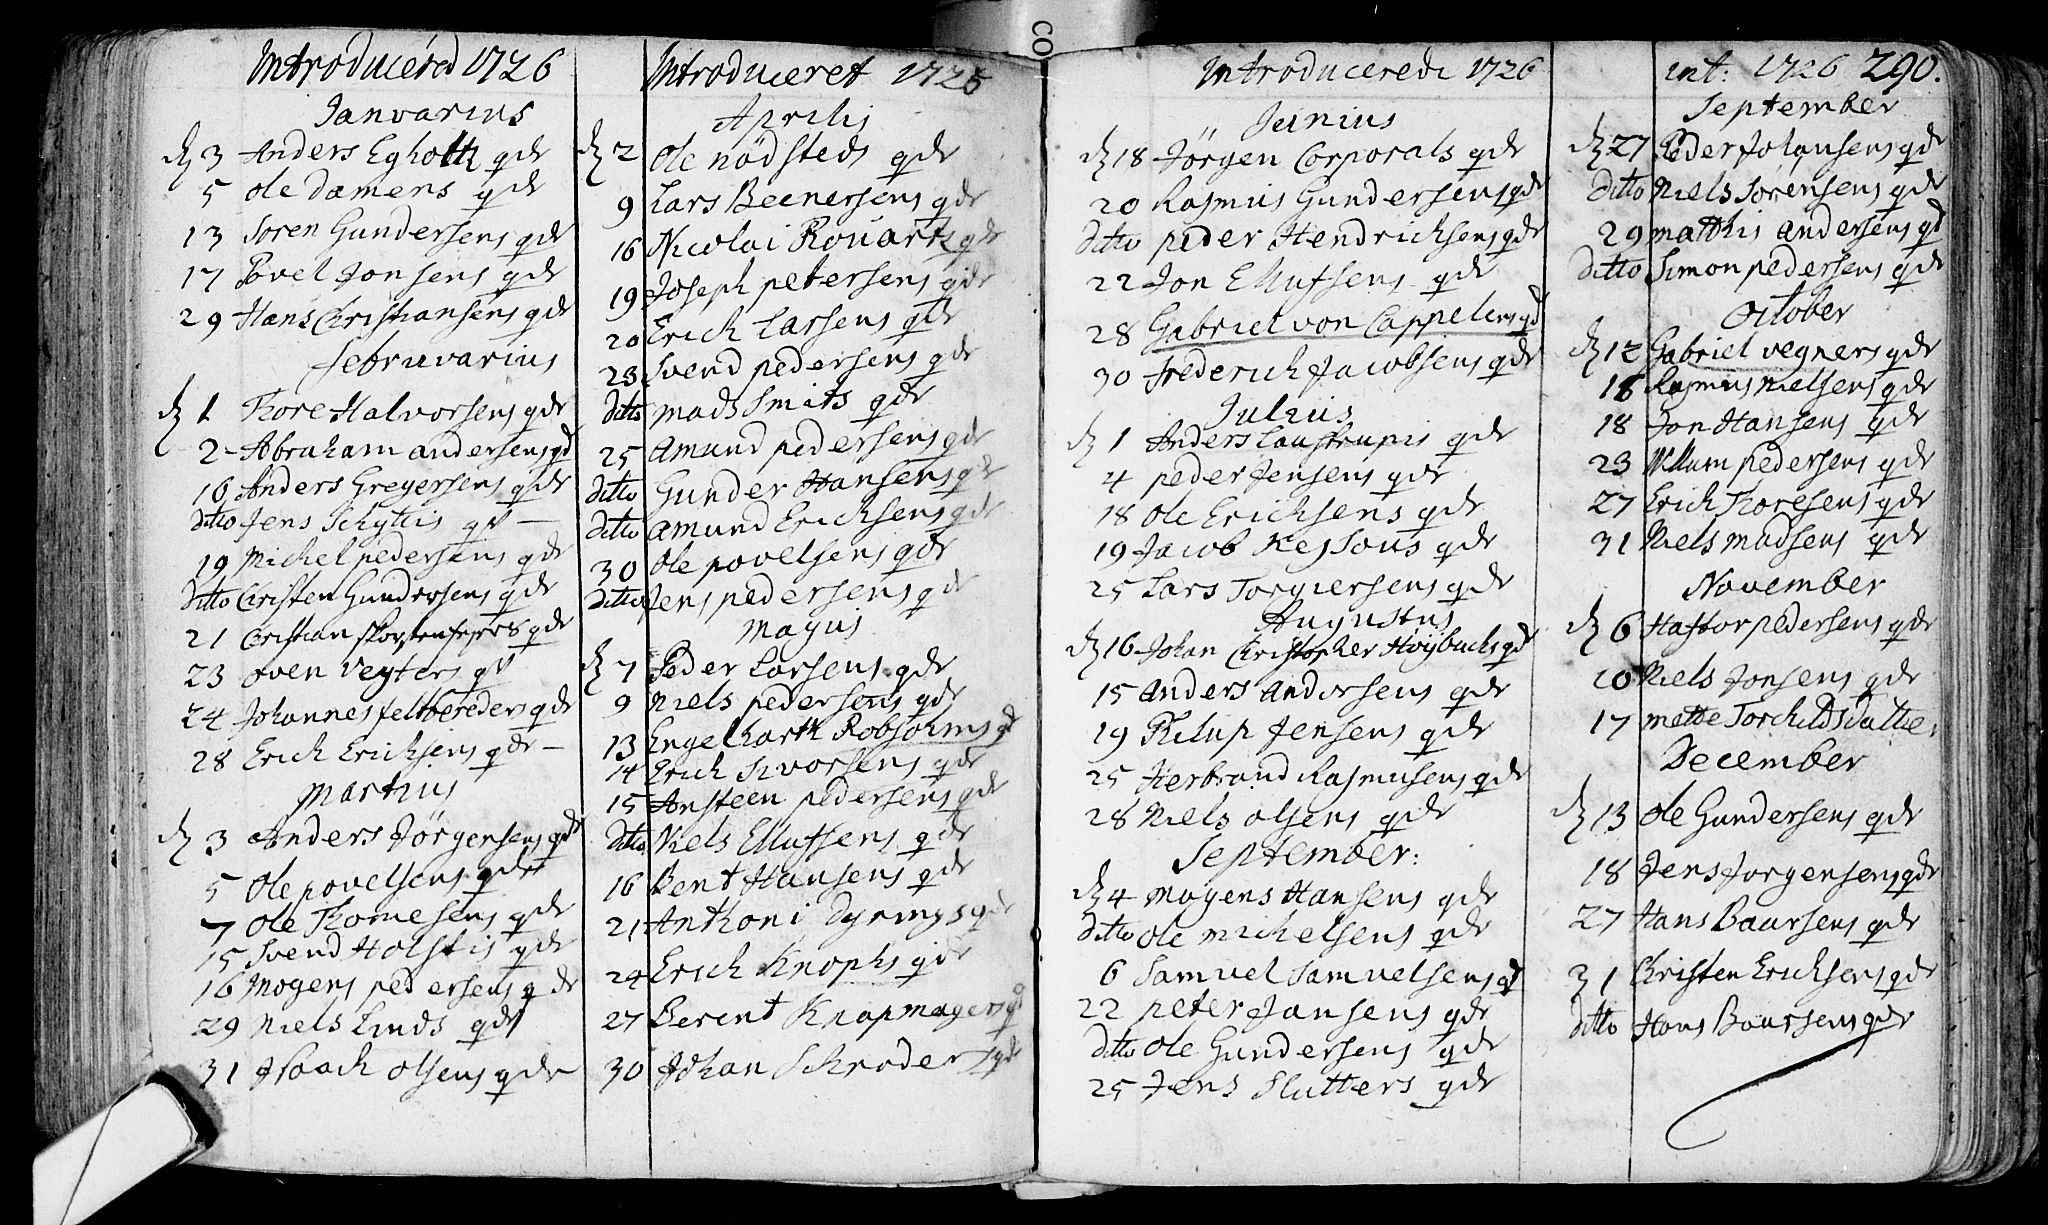 Introducered 1726
Janvarius
dẏ 3 Anders Egholtz qdr
5 Ole Damens qdr
13 Soren Gundersens qdr
17 Povel Jonsens qdr
29 Hans Christiansens qdr
Februvarius
dẏ 1 Thore Halvorsens qdr
2 Abraham andersens qd
16 Anders Gregersens qdr
ditto Jens Schyttis qd
19 Michel pedersens qdr
ditto Christen Gundersens qdr
21 Christian qdr
23 oven Vegters qd
24 Johannes feltbereders qdr
28 Erich Erichsens qdr
Martius
dẏ 3 Anders Jörgensens qdr
5 Ole povelsens qdr
7 Ole Thomesens qdr
15 Svend Holstis qdr
16 Mogens pedersens qdr
29 Niels Linds qdr
31 Isaach Olsens qdr
Introduceret 1726
Aprilis
dẏ 2 Ole nödsteds qdr
9 Lars Beenersens qdr
16 Nicolai Rouartz qdr
19 Joseph petersens qdr
20 Erich Larsens qdr
23 Svend pedersens qdr
ditto mads Smits qdr
25 Amund pedersens qdr
ditto Gunder Hansens qdr
ditto amund Erichsens qdr
30 Ole povelsens qdr
ditto Jens pedersens qdr
Mayus
dẏ 7 Peder Larsens qdr
9 Niels pedersens qdr
13 Engelharth Robsohms qd
14 Erich Sivorsens qdr
15 Ansteen pedersens qdr
ditto Niels Ellufsens qdr
16 Bent Hansens qdr
21 Anthoni Dyrings qdr
24 Erich Knophs qdr
27 Berent Knapmagers qd
30 Johan Schroders qdr
Introducerede 1726
Junius
dẏ 18 Jörgen Corporals qdr
20 Rasmus Gundersens qdr
ditto peder Hendrichsens qdr
22 Jon Ellufsens qdr
28 Gabriel von Cappelens qd
30 Frederich Jacobsens qdr
Julius
dẏ 1 Anders Laustrupis qdr
4 peder Jensens qdr
18 Ole Erichsens qdr
19 Jacob Kessous qdr
25 Lars Torgiersens qdr
Augustus
dẏ 16 Johan Christopher Höijbuchs qd
15 Anders Andersens qdr
19 Philip Jensens qdr
25 Herbrand Rasmusens qdr
28 Niels olsens qdr
September:
dẏ 4 Mogens Hansens qdr
ditto Ole michelsens qdr
6 Samuel Samuelsens qd
22 peter Jansens qdr
ditto Ole Gundersens qdr
25 Jens Slutters qdr
int: 1726 290.
September
dẏ 27 Peder Johansens qdr
ditto Niels Sörensens qdr
29 matthis andersens qd
ditto Simon pedersens qdr
October
dẏ 12 Gabriel vegners qdr
16 Rasmus Nielsens qdr
18 Jon Hansens qdr
23 Willum pedersens qdr
27 Erich Thoresens qdr
31 Niels madsens qdr
November
dẏ 6 Hastor pedersens qdr
10 Niels Jonsens qdr
17 mette Torchildsdatter
December
dẏ 13 Ole Gundersens qdr
18 Jens Jorgensens qdr
27 Hans Baarsens qdr
31 Christen Erichsens qdr
ditto Hans Baarsens qdr